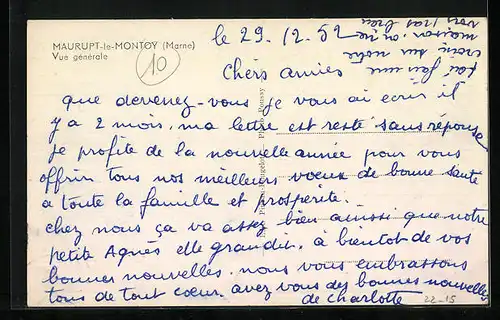 MAURUPT-le-MONTOY (Marne)
Vue générale
10
le 29-12-52
Chers amies
que devenez-vous je vous ai ecrir il
y a 2 mois, ma lettre est resté sans réponse
je profite de la nouvelle année pour vous
offrir tous nos meilleurs voeux de bonne santé
a toute la famille et prosperité.
chez nous ça va assez bien aussi que notre
petite Agnès elle grandit. à bientot de vos
bonnes nouvelles. nous vous embrassons
tous de tout coeur. avez vous des bonnes nouvelles
de charlotte
22-15
j'ai fait une
croix sur notre
maison. on ne
vois pas bien